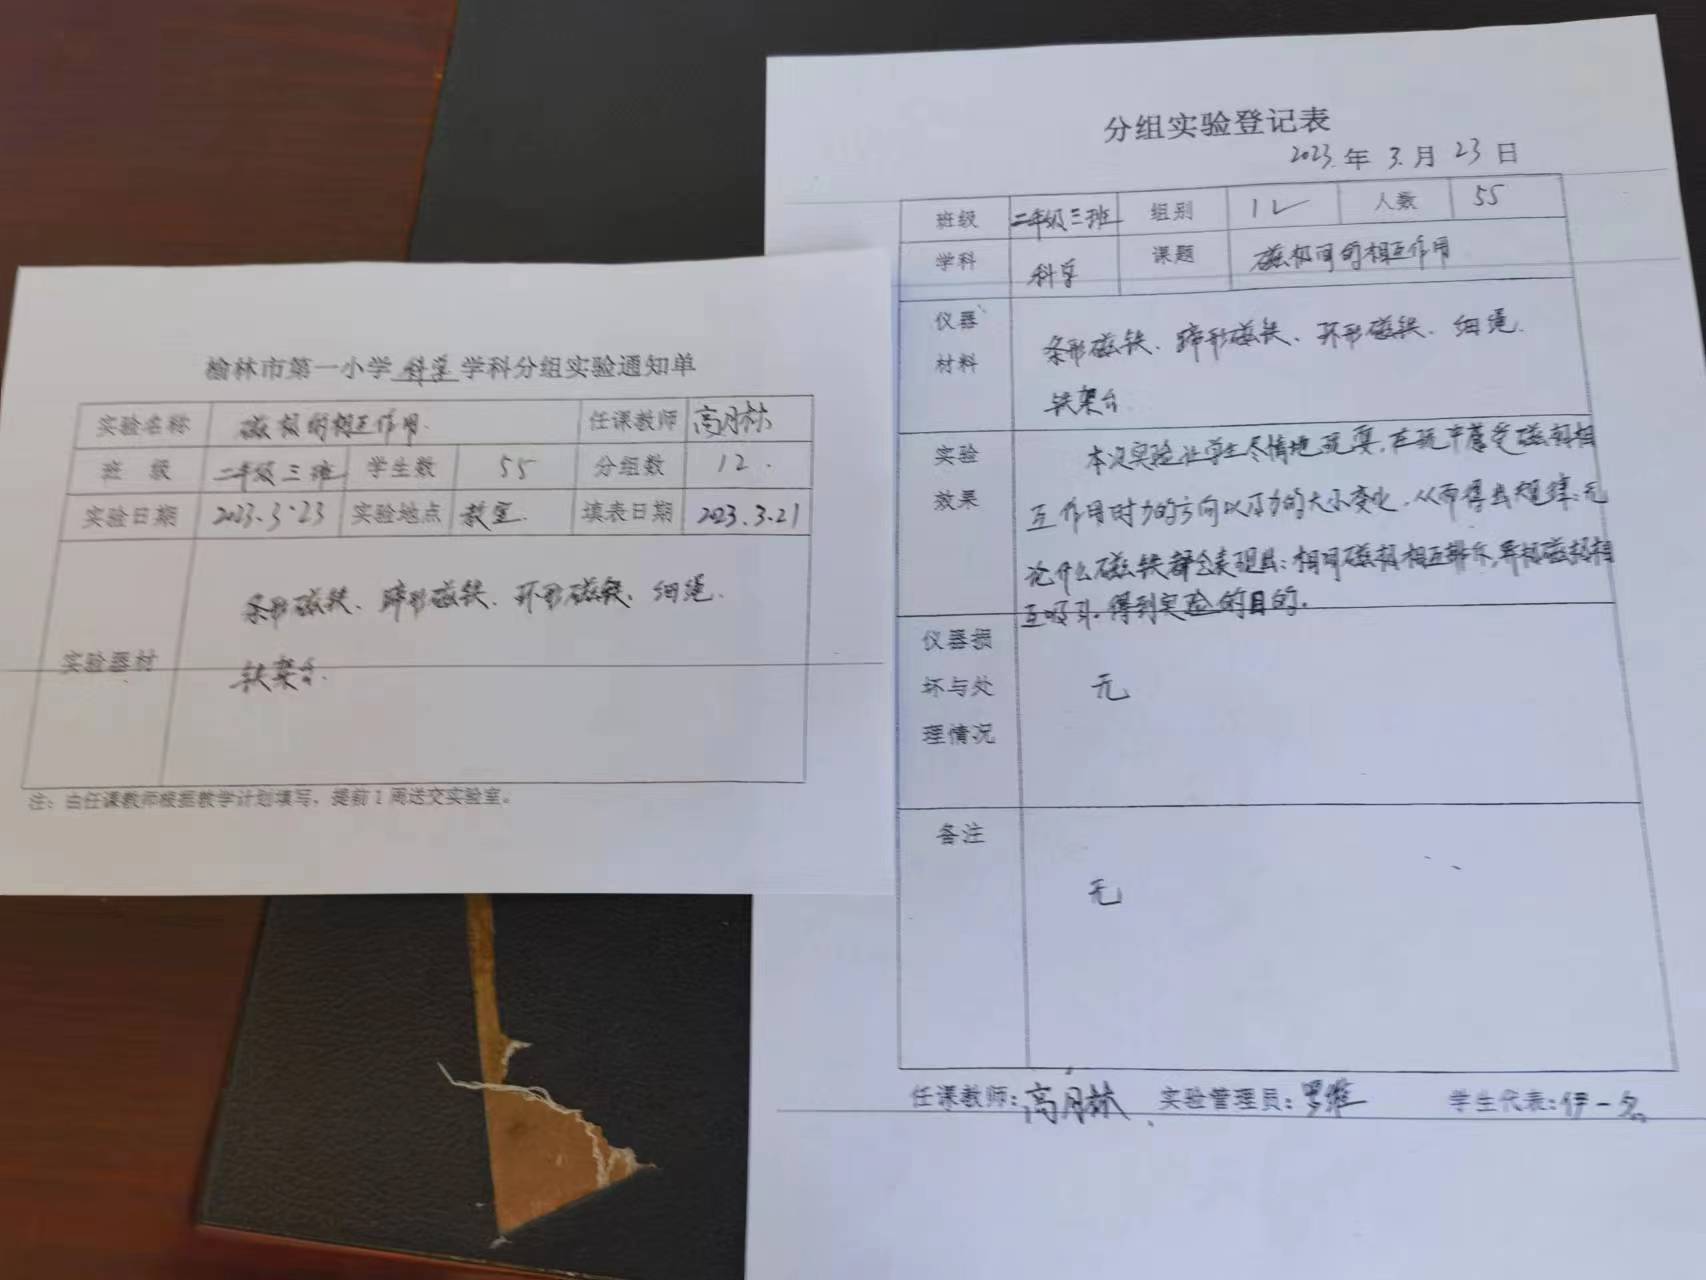 榆林市第一小学 科学 学科分组实验通知单
实验名称 磁极的相互作用. 任课教师 高月林
班 级 二年级三班 学生数 55 分组数 12.
实验日期 2023.3.23 实验地点 教室. 填表日期 2023.3.21
实验器材
条形磁铁、蹄形磁铁、环形磁铁、细绳.
铁架台.
注：由任课教师根据教学计划填写，提前1周送交实验室。
分组实验登记表
2023.年 3.月 23日
班级 二年级三班 组别 12 人数 55
学科 科学 课题 磁极间的相互作用
仪器材料
条形磁铁、蹄形磁铁、环形磁铁、细绳.
铁架台
实验效果
本次实验让学生尽情地玩耍,在玩中感受磁极相
互作用时力的方向以及力的大小变化,从而得出规律:无
论什么磁铁都会表现出:相同磁极相互排斥,异极磁极相
互吸引.得到实验的目的.
仪器损坏与处理情况
无
备注
无
任课教师:高月林 实验管理员:罗维 学生代表:伊一名